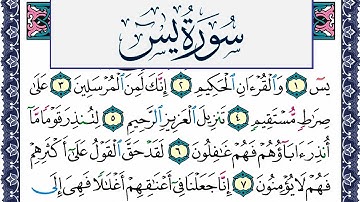 سُورَةُ يسٓ
يسٓ ١ وَٱلْقُرْءَانِ ٱلْحَكِيمِ ٢ إِنَّكَ لَمِنَ ٱلْمُرْسَلِينَ ٣ عَلَىٰ
صِرَٰطٍ مُّسْتَقِيمٍ ٤ تَنزِيلَ ٱلْعَزِيزِ ٱلرَّحِيمِ ٥ لِتُنذِرَ قَوْمًا مَّآ
أُنذِرَ ءَابَآؤُهُمْ فَهُمْ غَٰفِلُونَ ٦ لَقَدْ حَقَّ ٱلْقَوْلُ عَلَىٰٓ أَكْثَرِهِمْ
فَهُمْ لَا يُؤْمِنُونَ ٧ إِنَّا جَعَلْنَا فِىٓ أَعْنَٰقِهِمْ أَغْلَٰلًا فَهِىَ إِلَى